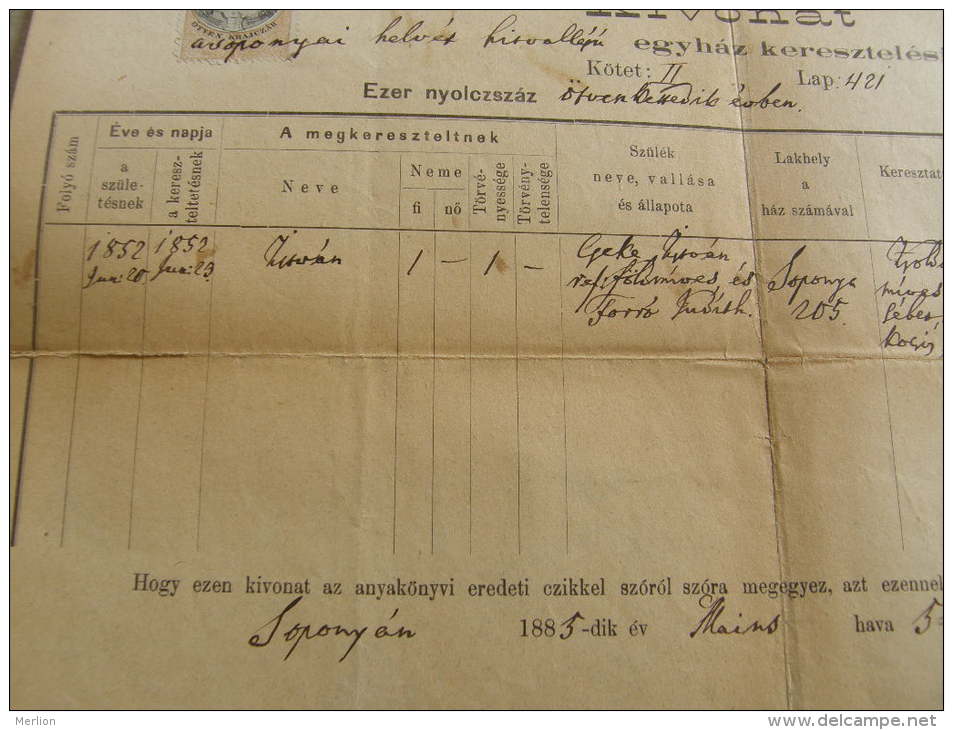 ÖTVEN KRAJCZÁR
Kivonat
a soponyai helvét hitvallású egyház keresztelési
Kötet: II Lap: 421
Ezer nyolczszáz ötvenkettedik évben.
Folyó szám
Éve és napja
a szüle-
tésnek
a keresz-
teltetésnek
A megkereszteltnek
Neve
Neme
fi nő
Törvé-
nyessége
Törvény-
telensége
Szülék
neve, vallása
és állapota
Lakhely
a
ház számával
Keresztat
1852
Jun: 20
1852
Jun: 23
István
1 – 1 –
Geke István
ref. földmives és
Forró Judith.
Soponya
205.
Földm
mives
Hogy ezen kivonat az anyakönyvi eredeti czikkel szóról szóra megegyez, azt ezennel
Soponyán 1885-dik év Május hava 5
Merlion
www.delcampe.net